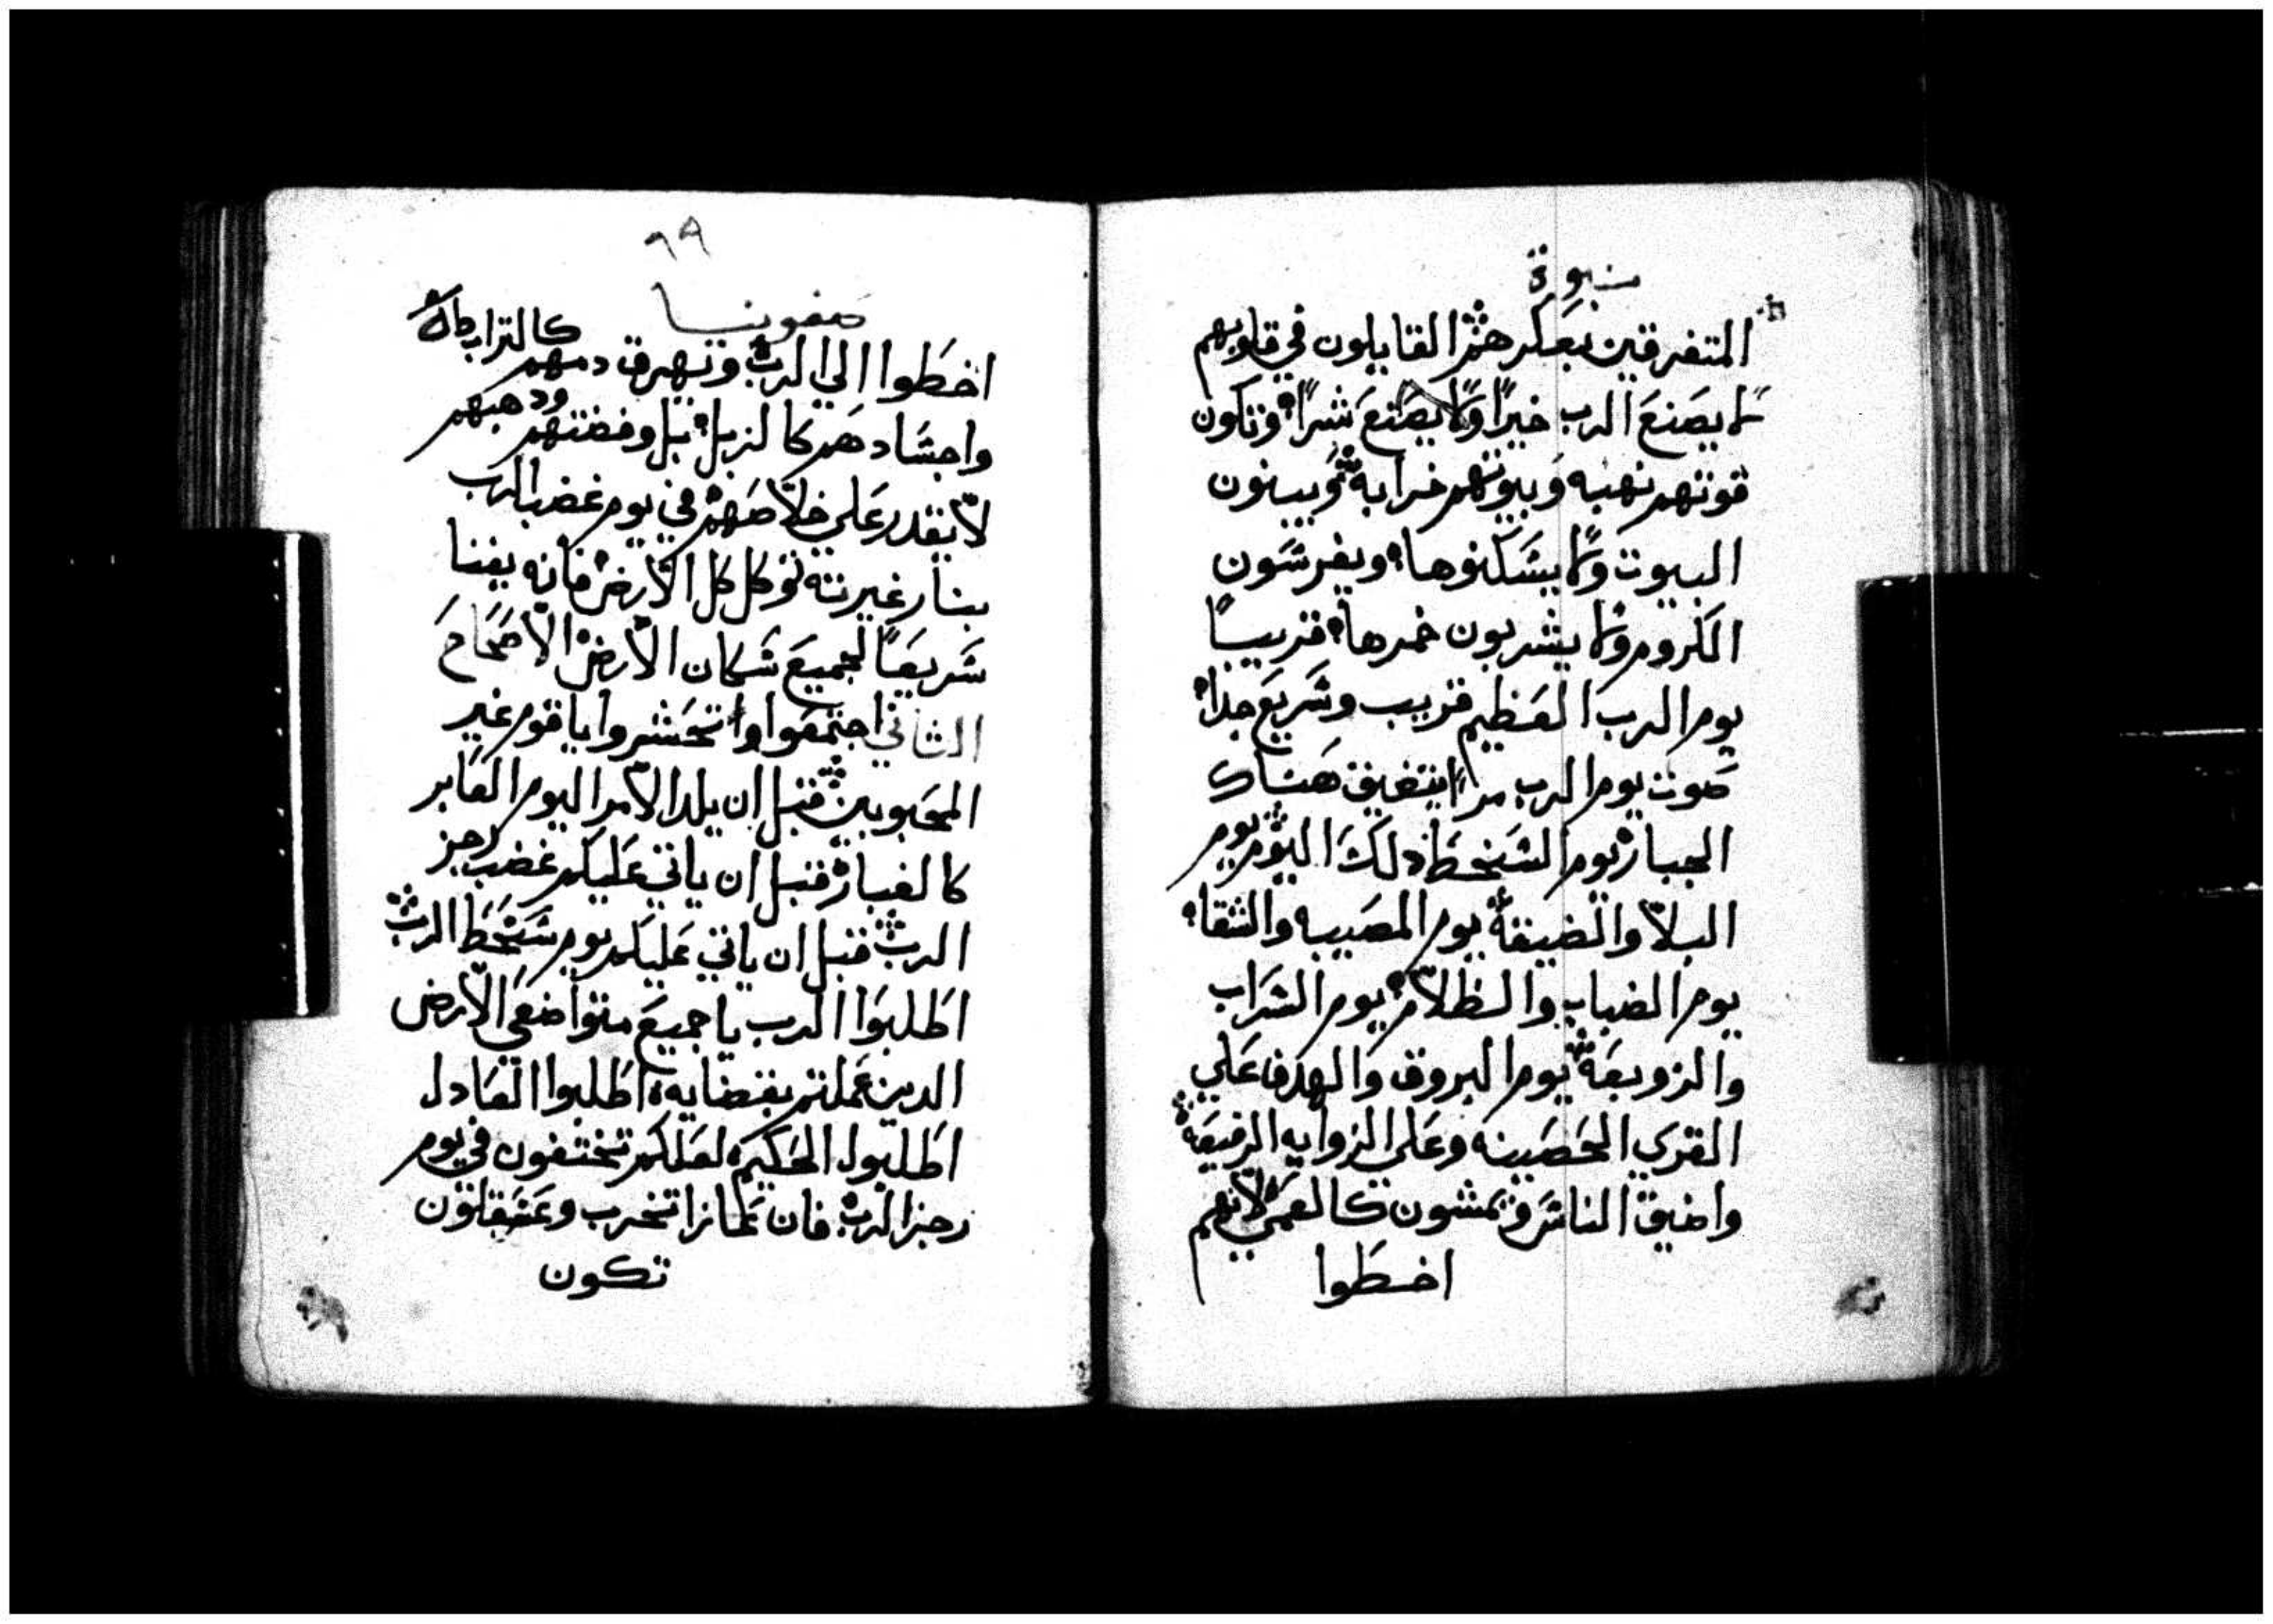 نبوة
المتفرقين بعكرهم القايلون في قلوبهم
لا يصنع الرب خيرًا ولا يصنع شرًا وتكون
قوتهم نهبه وبيوتهم خرابه ويبنون
البيوت ولا يسكنوها ويغرسون
الكروم ولا يشربون خمرها قريبًا
يوم الرب العظيم قريب وسريع جدا
صوت يوم الرب مرًا يتضيق هناك
الجبار يوم السخط ذلك اليوم يوم
البلا والضيقة يوم المصيبه والشقا
يوم الضباب والظلام يوم السراب
والزوبعة يوم البروق والهدف علي
القري الحصينه وعلي الزوايه الرفيعة
واضيق الناس ويمشون كالعمي لانهم
اخطوا
٦٩
صفونيا
اخطوا الي الرب وتهرق دمهم كالتراب
واجسادهم كالزبل بل وفضتهم ودهبهم
لا تقدر علي خلاصهم في يوم غضب الرب
بنار غيرته توكل كل الارض فانه يفنا
سريعًا لجميع سكان الارض الاصحاح
الثاني اجتمعوا واتحشروا يا قوم غير
المحبوبين قبل ان يلد الامر اليوم العابر
كالغبار قبل ان ياتي عليكم غضب رجز
الرب قبل ان ياتي عليكم يوم سخط الرب
اطلبوا الرب يا جميع متواضعي الارض
الدين عملتم بقضايه اطلبوا العادل
اطلبوا الحكيم لعلكم تختفون في يوم
رجز الرب فان غازا تخرب وعسقلون
تكون